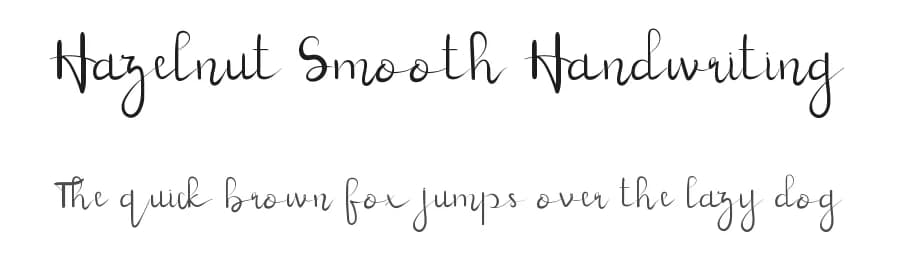 Hazelnut Smooth Handwriting
The quick brown fox jumps over the lazy dog